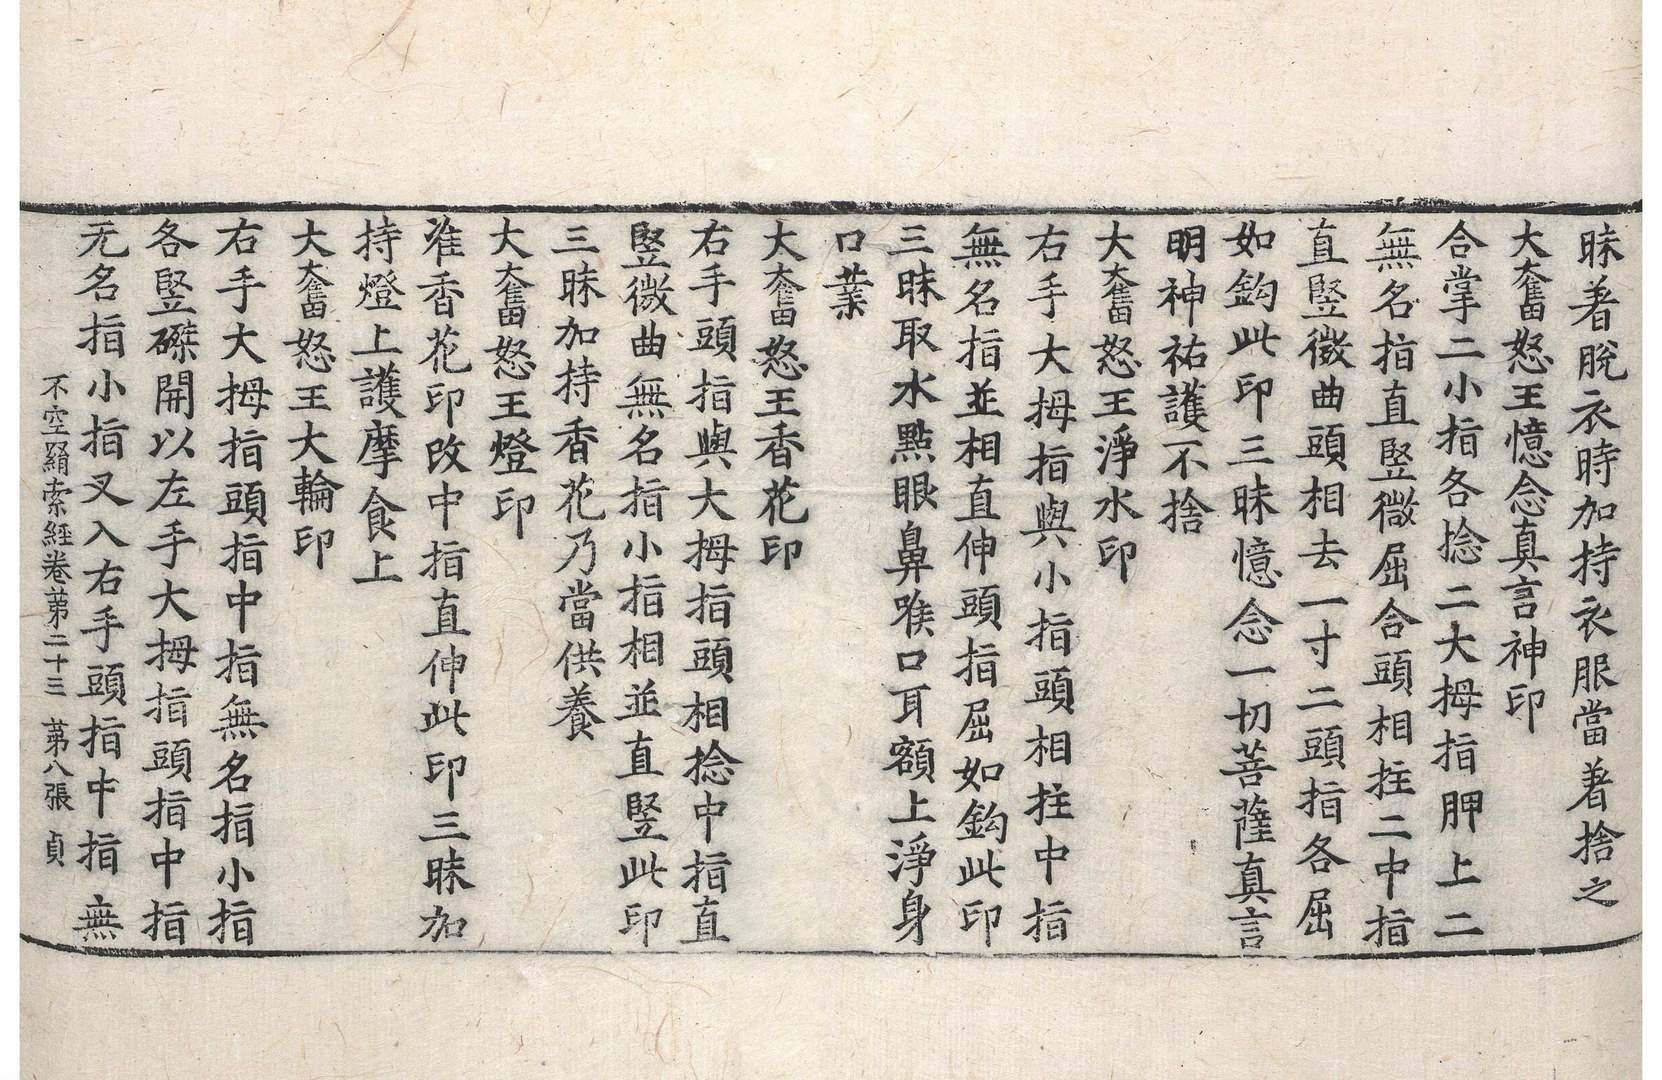 昧着脫衣時加持衣服當着捨之
大奮怒王憶念真言神印
合掌二小指各捻二大拇指胛上二
無名指直竪微屈合頭相拄二中指
直竪微曲頭相去一寸二頭指各屈
如鈎此印三昧憶念一切菩薩真言
明神祐護不捨
大奮怒王淨水印
右手大拇指與小指頭相拄中指
無名指並相直伸頭指屈如鈎此印
三昧取水點眼鼻喉口耳額上淨身
口業
大奮怒王香花印
右手頭指與大拇指頭相捻中指直
竪微曲無名指小指相並直竪此印
三昧加持香花乃當供養
大奮怒王燈印
准香花印改中指直伸此印三昧加
持燈上護摩食上
大奮怒王大輪印
右手大拇指頭指中指無名指小指
各竪磔開以左手大拇指頭指中指
无名指小指叉入右手頭指中指無
不空羂索經卷苐二十三 苐八張 貞